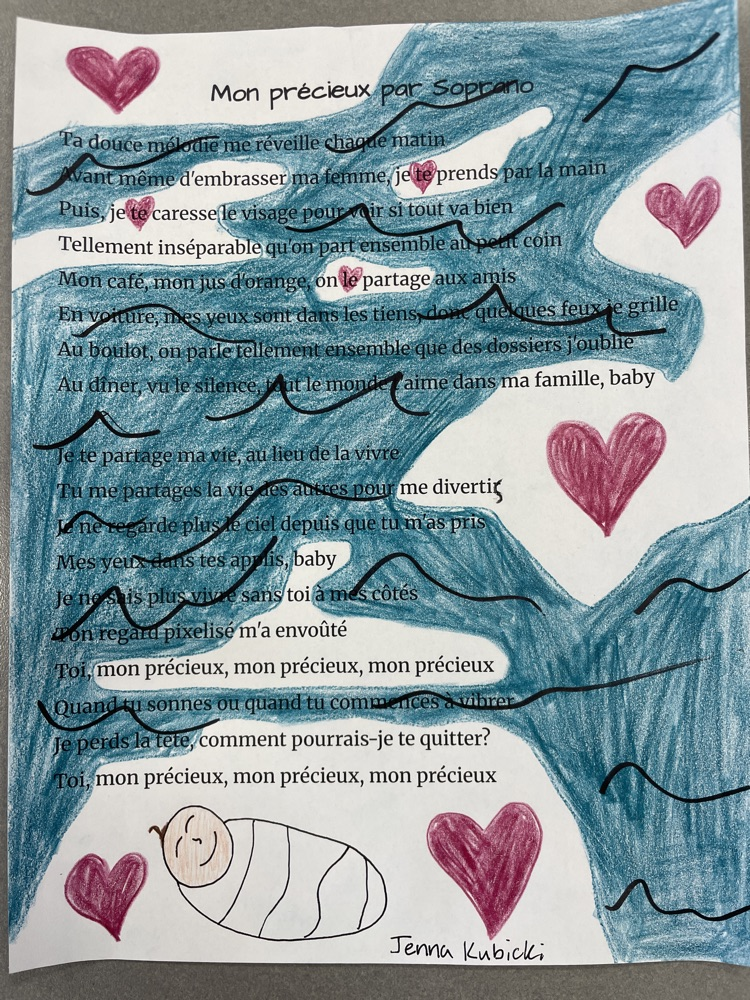 Mon précieux par Soprano
Ta douce mélodie me réveille chaque matin
Avant même d'embrasser ma femme, je te prends par la main
Puis, je te caresse le visage pour voir si tout va bien
Tellement inséparable qu'on part ensemble au petit coin
Mon café, mon jus d'orange, on le partage aux amis
En voiture, mes yeux sont dans les tiens, donc quelques feux je grille
Au boulot, on parle tellement ensemble que des dossiers j'oublie
Au dîner, vu le silence, tout le monde t'aime dans ma famille, baby
Je te partage ma vie, au lieu de la vivre
Tu me partages la vie des autres pour me divertir
Je ne regarde plus le ciel depuis que tu m'as pris
Mes yeux dans tes applis, baby
Je ne sais plus vivre sans toi à mes côtés
Ton regard pixelisé m'a envoûté
Toi, mon précieux, mon précieux, mon précieux
Quand tu sonnes ou quand tu commences à vibrer
Je perds la tête, comment pourrais-je te quitter?
Toi, mon précieux, mon précieux, mon précieux
Jenna Kubicki